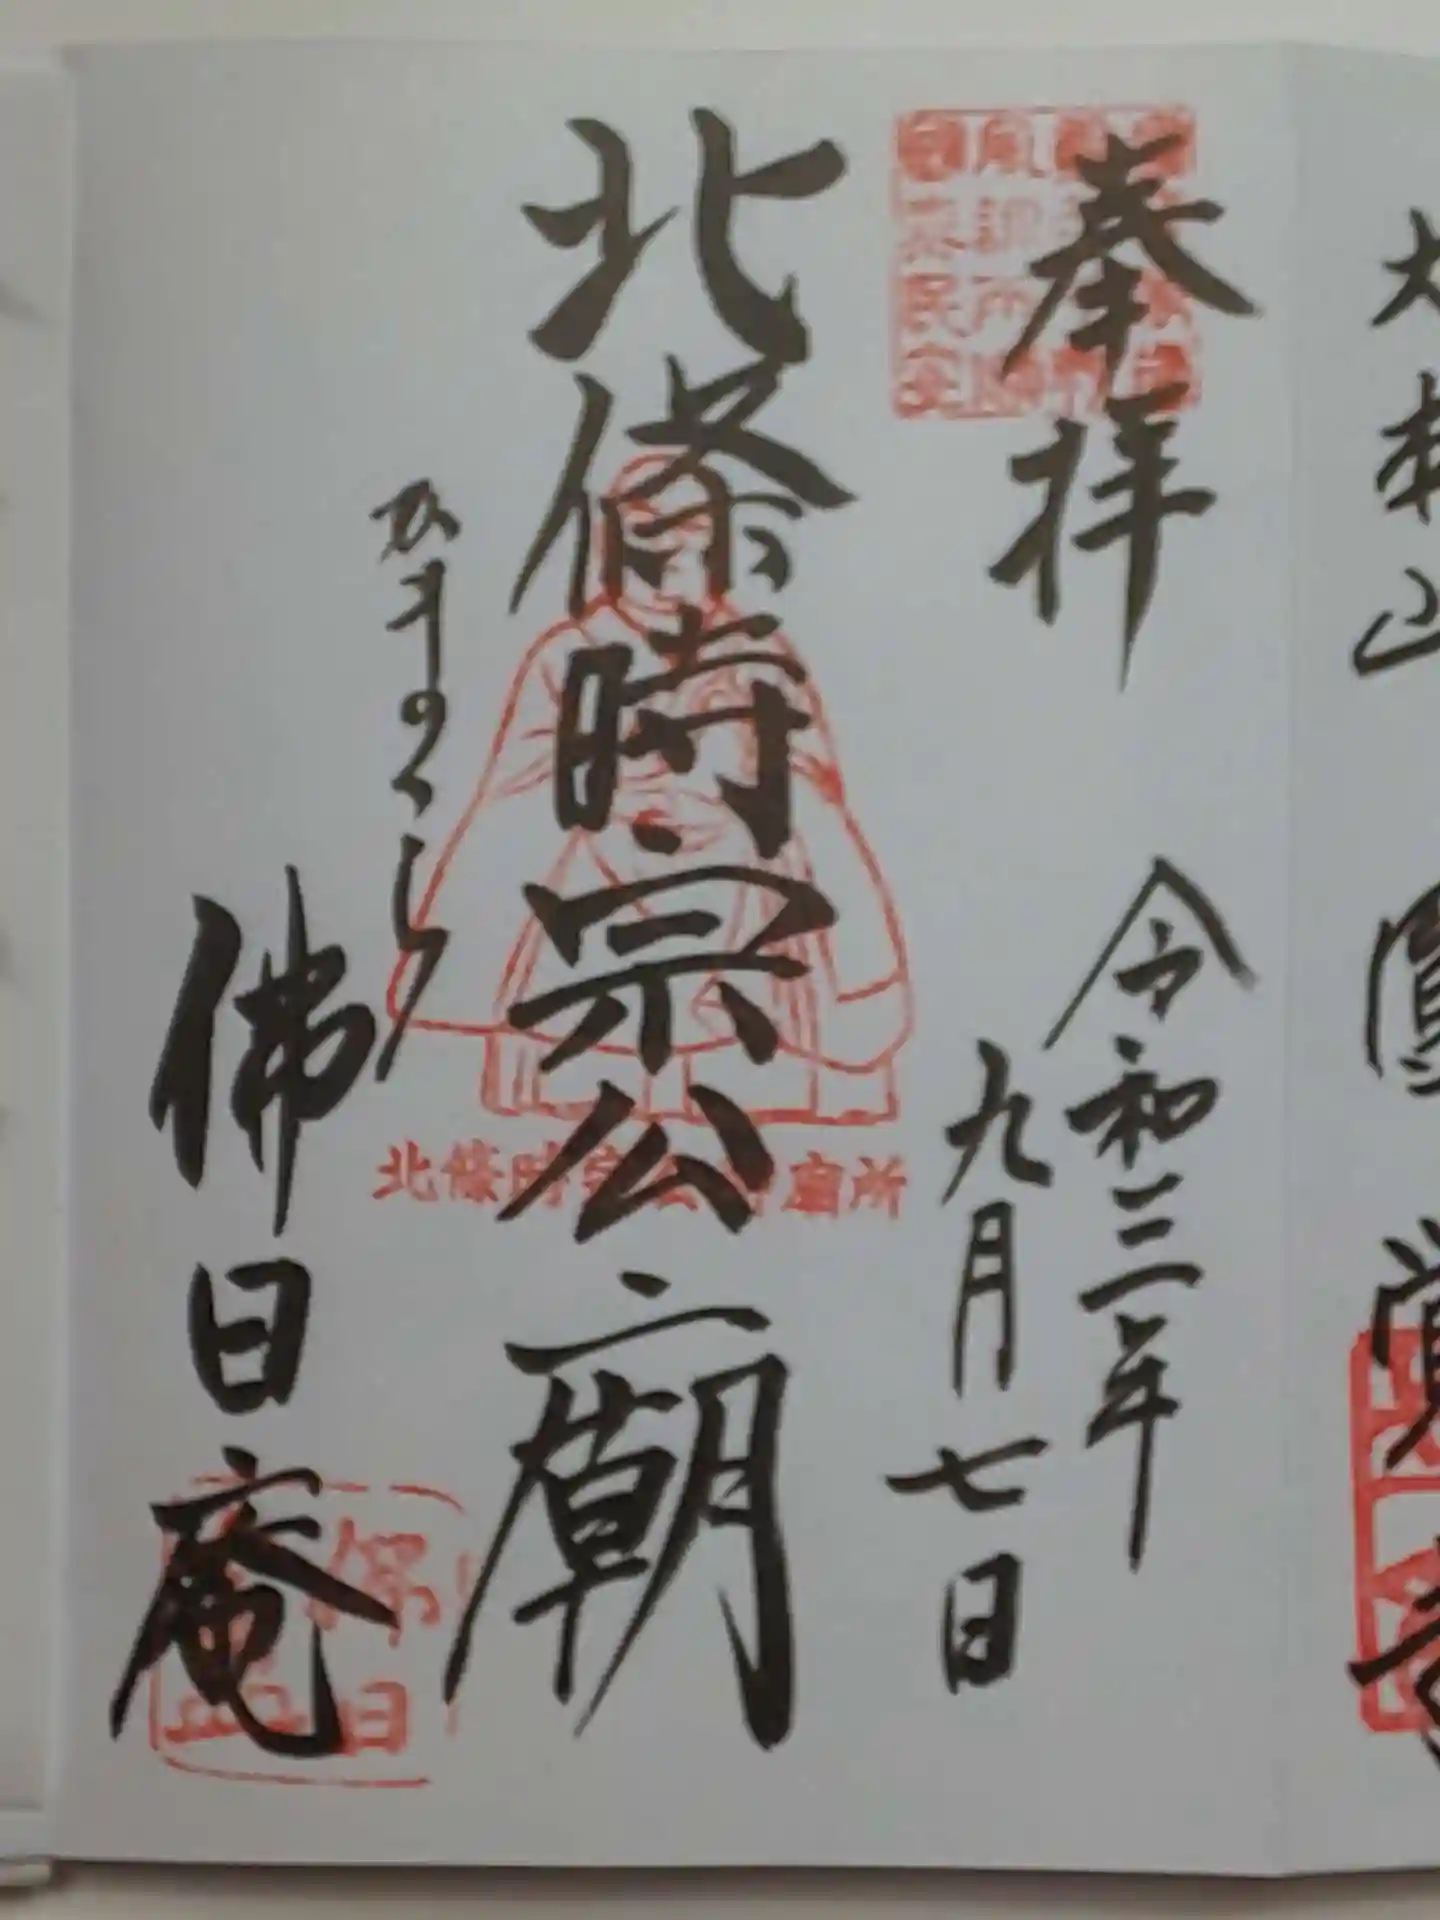 大本山
圓覚寺
奉拝
令和三年
九月七日
北條時宗公廟
北條時宗公御廟所
佛日庵
佛日